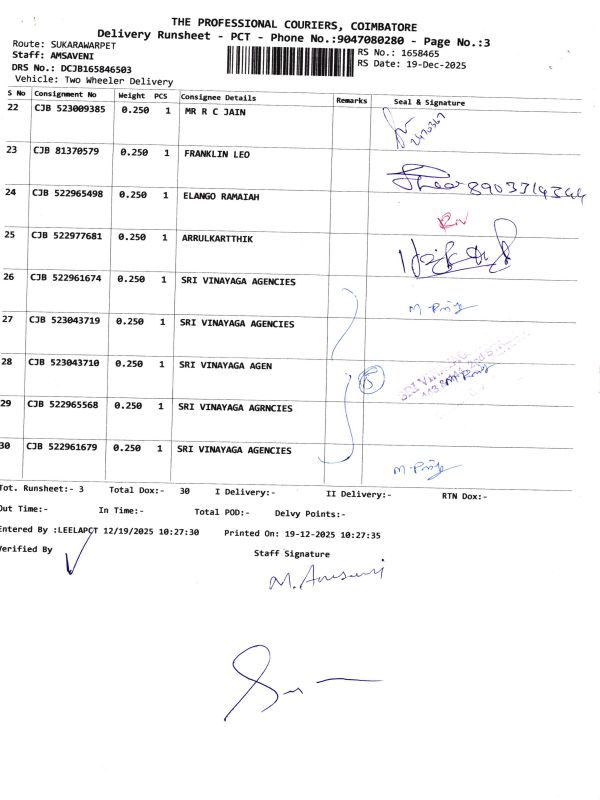 THE PROFESSIONAL COURIERS, COIMBATORE
Delivery Runsheet - PCT - Phone No.:9047080280 - Page No.:3
Route: SUKARAWARPET
Staff: AMSAVENI
DRS No.: DCJB165846503
Vehicle: Two Wheeler Delivery
RS No.: 1658465
RS Date: 19-Dec-2025
S No Consignment No Weight PCS Consignee Details Remarks Seal & Signature
22 CJB 523009385 0.250 1 MR R C JAIN
23 CJB 81370579 0.250 1 FRANKLIN LEO
8903314344
24 CJB 522965498 0.250 1 ELANGO RAMAIAH
25 CJB 522977681 0.250 1 ARRULKARTTHIK
26 CJB 522961674 0.250 1 SRI VINAYAGA AGENCIES
27 CJB 523043719 0.250 1 SRI VINAYAGA AGENCIES
28 CJB 523043710 0.250 1 SRI VINAYAGA AGEN
5
29 CJB 522965568 0.250 1 SRI VINAYAGA AGRNCIES
30 CJB 522961679 0.250 1 SRI VINAYAGA AGENCIES
Tot. Runsheet:- 3 Total Dox:- 30 I Delivery:- II Delivery:- RTN Dox:-
Out Time:- In Time:- Total POD:- Delvy Points:-
Entered By :LEELAPCT 12/19/2025 10:27:30 Printed On: 19-12-2025 10:27:35
Verified By Staff Signature